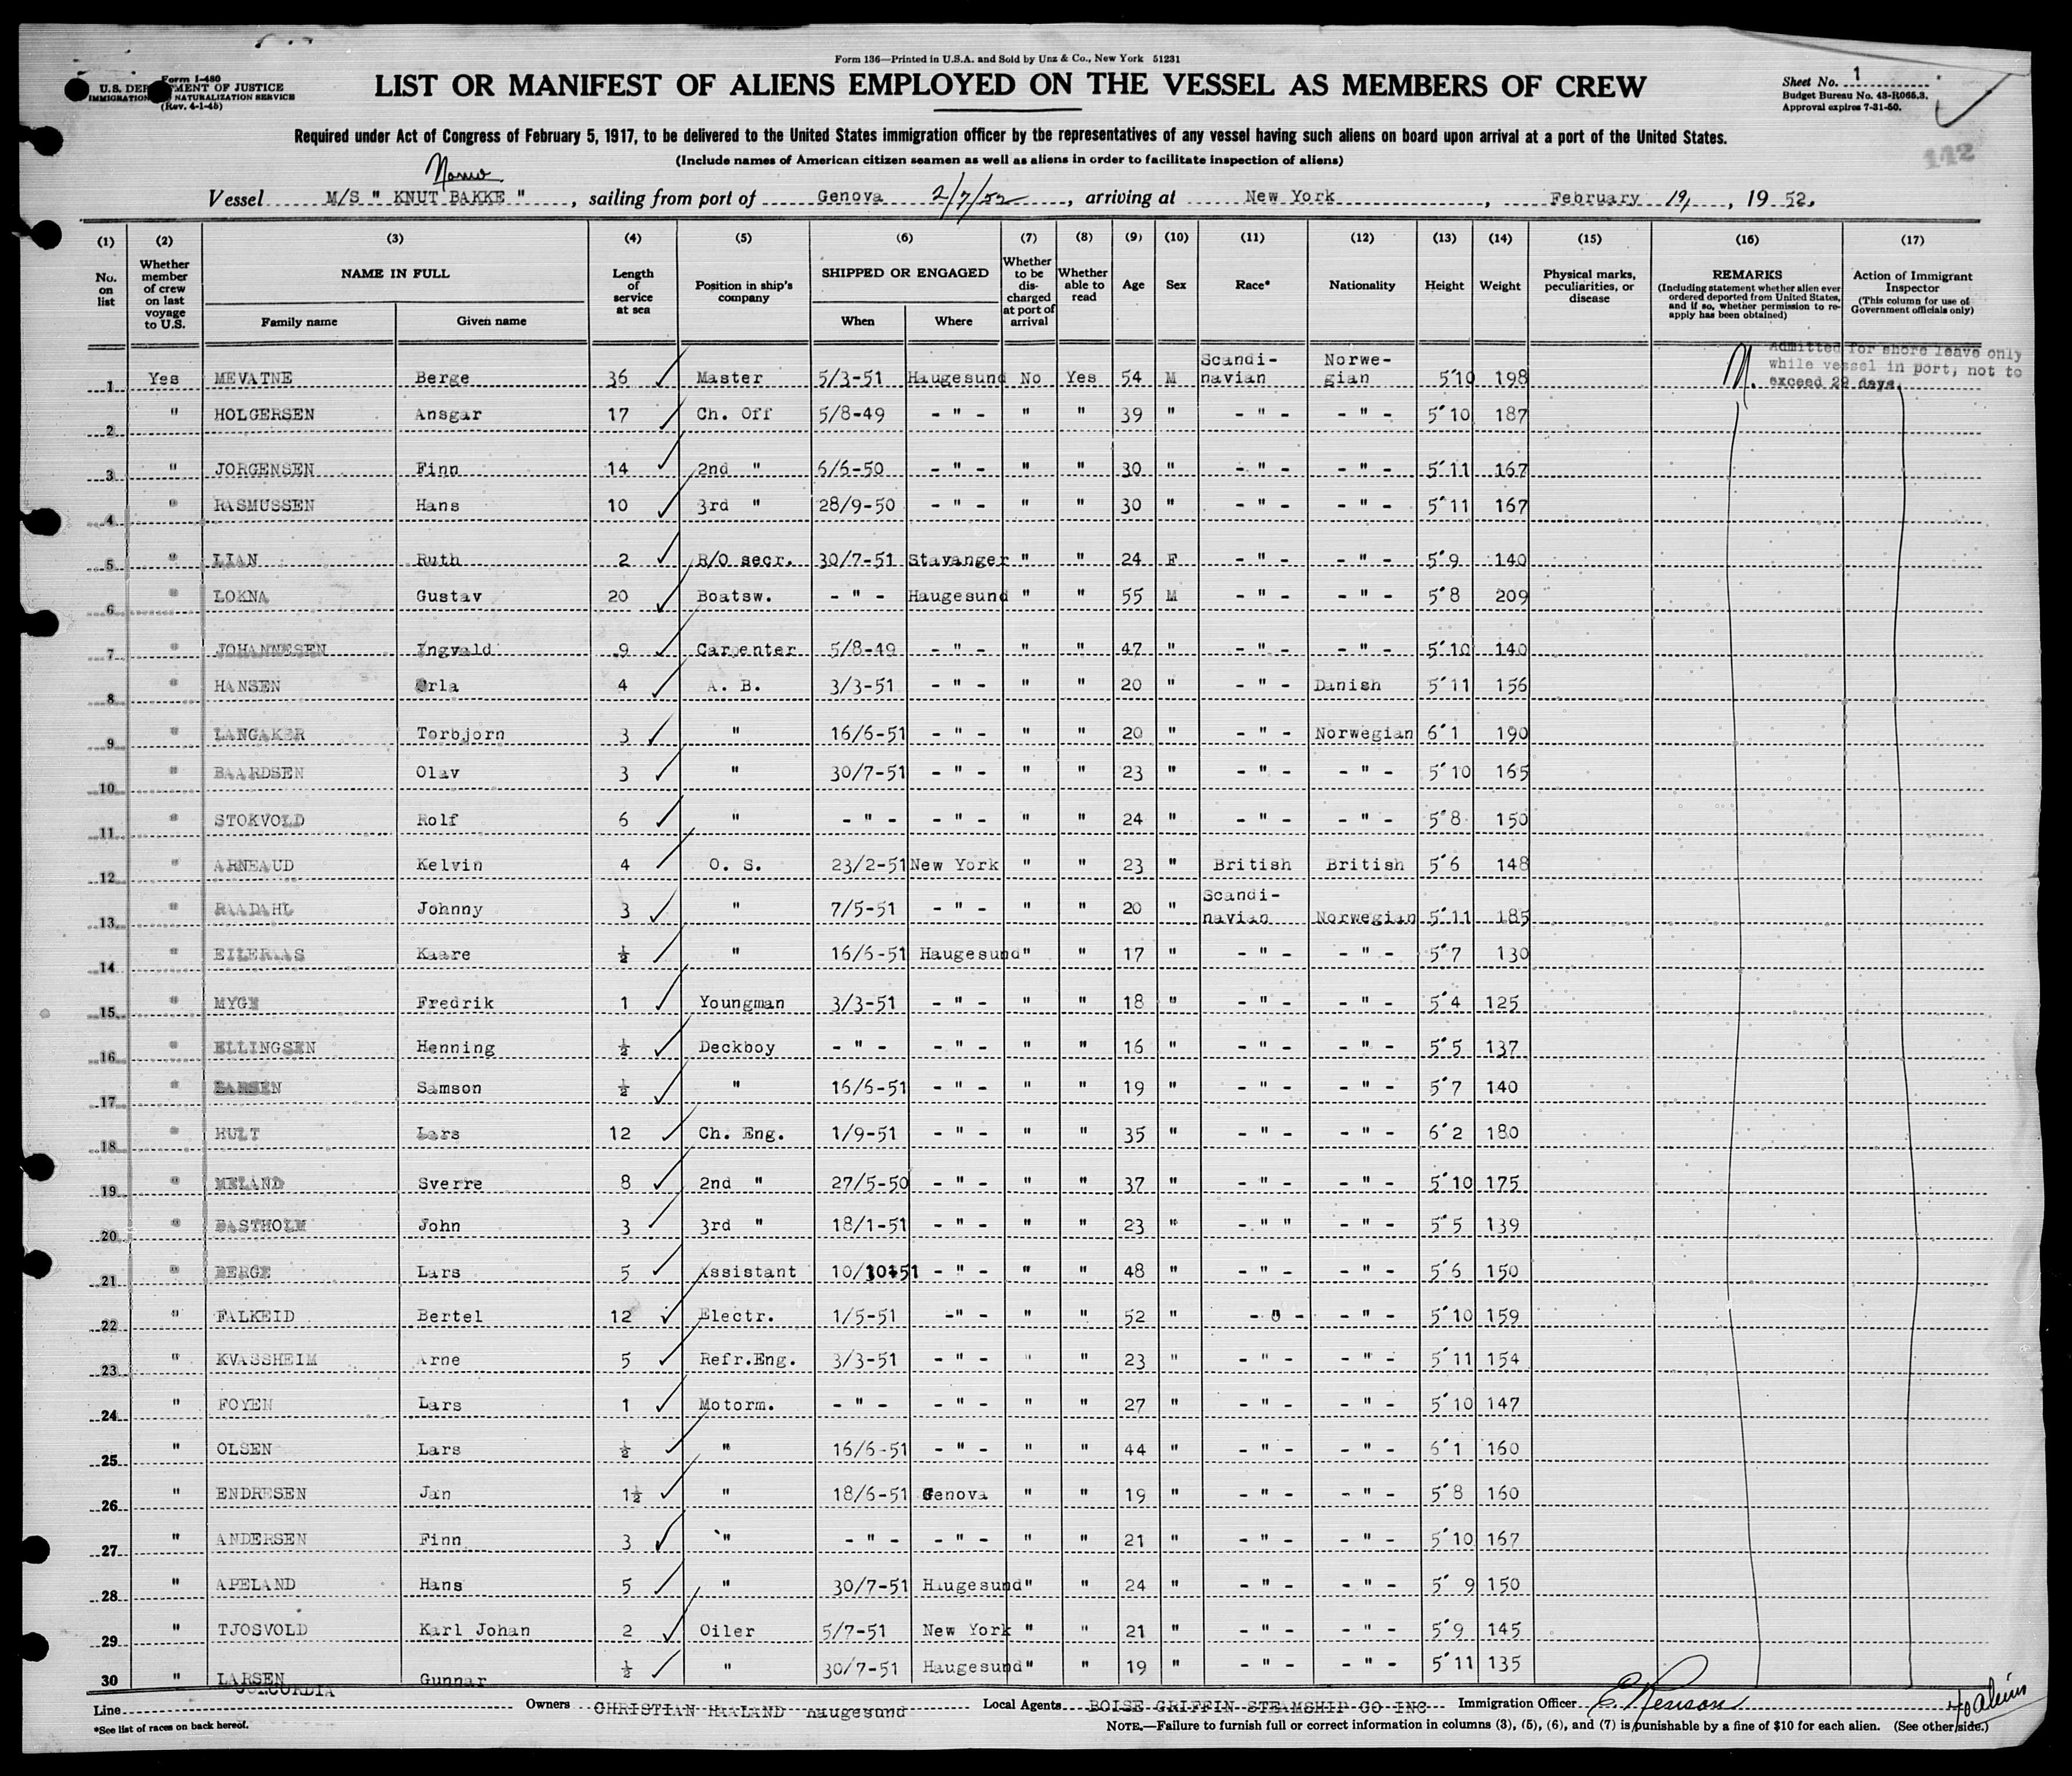 Form 136—Printed in U.S.A. and Sold by Unz & Co., New York 51231
Form I-480
U.S. DEPARTMENT OF JUSTICE
IMMIGRATION NATURALIZATION SERVICE
(Rev. 4-1-45)
LIST OR MANIFEST OF ALIENS EMPLOYED ON THE VESSEL AS MEMBERS OF CREW
Sheet No. 1
Budget Bureau No. 43-R065.3.
Approval expires 7-31-50.
Required under Act of Congress of February 5, 1917, to be delivered to the United States immigration officer by the representatives of any vessel having such aliens on board upon arrival at a port of the United States.
(Include names of American citizen seamen as well as aliens in order to facilitate inspection of aliens)
142
Vessel M/S " KNUT BAKKE ", sailing from port of Genova 2/7/52, arriving at New York, February 19, 1952.
(1) (2) (3) (4) (5) (6) (7) (8) (9) (10) (11) (12) (13) (14) (15) (16) (17)
No. on list
Whether member of crew on last voyage to U.S.
NAME IN FULL
Family name Given name
Length of service at sea
Position in ship's company
SHIPPED OR ENGAGED
When Where
Whether to be discharged at port of arrival
Whether able to read
Age Sex Race* Nationality Height Weight
Physical marks, peculiarities, or disease
REMARKS
(Including statement whether alien ever ordered deported from United States, and if so, whether permission to re-apply has been obtained)
Action of Immigrant Inspector
(This column for use of Government officials only)
Admitted for shore leave only
while vessel in port, not to
exceed 29 days.
1 Yes MEVATNE Berge 36 Master 5/3-51 Haugesund No Yes 54 M Scandi-navian Norwe-gian 5'10 198
2 " HOLGERSEN Ansgar 17 Ch. Off 5/8-49 - " - " " 39 " - " - - " - 5'10 187
3 " JORGENSEN Finn 14 2nd " 6/6-50 - " - " " 30 " - " - - " - 5'11 167
4 " RASMUSSEN Hans 10 3rd " 28/9-50 - " - " " 30 " - " - - " - 5'11 167
5 " LIAN Ruth 2 R/O secr. 30/7-51 Stavanger " " 24 F - " - - " - 5'9 140
6 " LOKNA Gustav 20 Boatsw. - " - Haugesund " " 55 M - " - - " - 5'8 209
7 " JOHANNESEN Ingvald 9 Carpenter 5/8-49 - " - " " 47 " - " - - " - 5'10 140
8 " HANSEN Orla 4 A. B. 3/3-51 - " - " " 20 " - " - Danish 5'11 156
9 " LANGAKER Torbjorn 3 " 16/6-51 - " - " " 20 " - " - Norwegian 6'1 190
10 " BAARDSEN Olav 3 " 30/7-51 - " - " " 23 " - " - - " - 5'10 165
11 " STOKVOLD Rolf 6 " - " - - " - " " 24 " - " - - " - 5'8 150
12 " ARNEAUD Kelvin 4 O. S. 23/2-51 New York " " 23 " British British 5'6 148
13 " RAADAHL Johnny 3 " 7/5-51 - " - " " 20 " Scandi-navian Norwegian 5'11 185
14 " Kaare ½ " 16/6-51 Haugesund " " 17 " - " - - " - 5'7 130
15 " Fredrik 1 Youngman 3/3-51 - " - " " 18 " - " - - " - 5'4 125
16 " ELLINGSEN Henning ½ Deckboy - " - - " - " " 16 " - " - - " - 5'5 137
17 " Samson ½ " 16/6-51 - " - " " 19 " - " - - " - 5'7 140
18 " HULT Lars 12 Ch. Eng. 1/9-51 - " - " " 35 " - " - - " - 6'2 180
19 " MELAND Sverre 8 2nd " 27/5-50 - " - " " 37 " - " - - " - 5'10 175
20 " BASTHOLM John 3 3rd " 18/1-51 - " - " " 23 " - " " - " - 5'5 139
21 " BERGE Lars 5 Assistant 10/10-51 - " - " " 48 " - " - - " - 5'6 150
22 " FALKEID Bertel 12 Electr. 1/5-51 -" - " " 52 " - " - - " - 5'10 159
23 " KVASSHEIM Arne 5 Refr.Eng. 3/3-51 - " - " " 23 " - " - - " - 5'11 154
24 " FOYEN Lars 1 Motorm. - " - - " - " " 27 " - " - - " - 5'10 147
25 " OLSEN Lars ½ " 16/6-51 - " - " " 44 " - " - - " - 6'1 160
26 " ENDRESEN Jan 1½ " 18/6-51 Genova " " 19 " - " - - " - 5'8 160
27 " ANDERSEN Finn 3 " - " - - " - " " 21 " - " - - " - 5'10 167
28 " APELAND Hans 5 " 30/7-51 Haugesund " " 24 " - " - - " - 5' 9 150
29 " TJOSVOLD Karl Johan 2 Oiler 5/7-51 New York " " 21 " - " - - " - 5'9 145
30 " LARSEN Gunnar ½ " 30/7-51 Haugesund " " 19 " - " - - " - 5'11 135
Line CONCORDIA Owners CHRISTIAN HAALAND Haugesund Local Agents BOISE GRIFFIN STEAMSHIP CO INC Immigration Officer
*See list of races on back hereof.
NOTE.—Failure to furnish full or correct information in columns (3), (5), (6), and (7) is punishable by a fine of $10 for each alien. (See other side.)